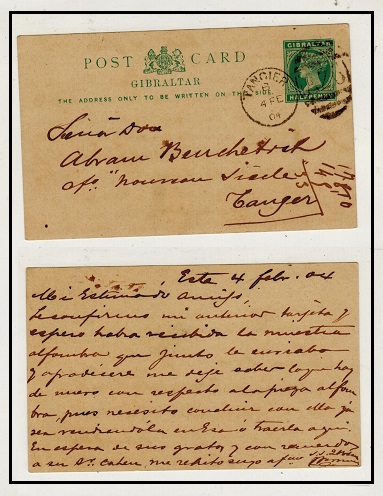 POST CARD
GIBRALTAR
THE ADDRESS ONLY TO BE WRITTEN ON THIS SIDE.
GIBRALTAR
HALFPENNY
TANGIER
4 FE
04
Señor Don
Abram Benchetrit
Nouveau Siecle
Tanger
Este 4 febr. 04
Mi Estimado Amigo,
Le confirmo mi anterior tarjeta y
espero habra recibido la muestra
alfombra que junto le enviaba
y agradecere me deje saber lo que hay
de nuevo con respecto a la pieza alfom
bra, pues necesito concluir con ella ya
sea vendiendola en Esa ó traerla aqui.
En espera de sus gratas y con recuerdos
a su Sr. Cohen, me repito suyo afmo